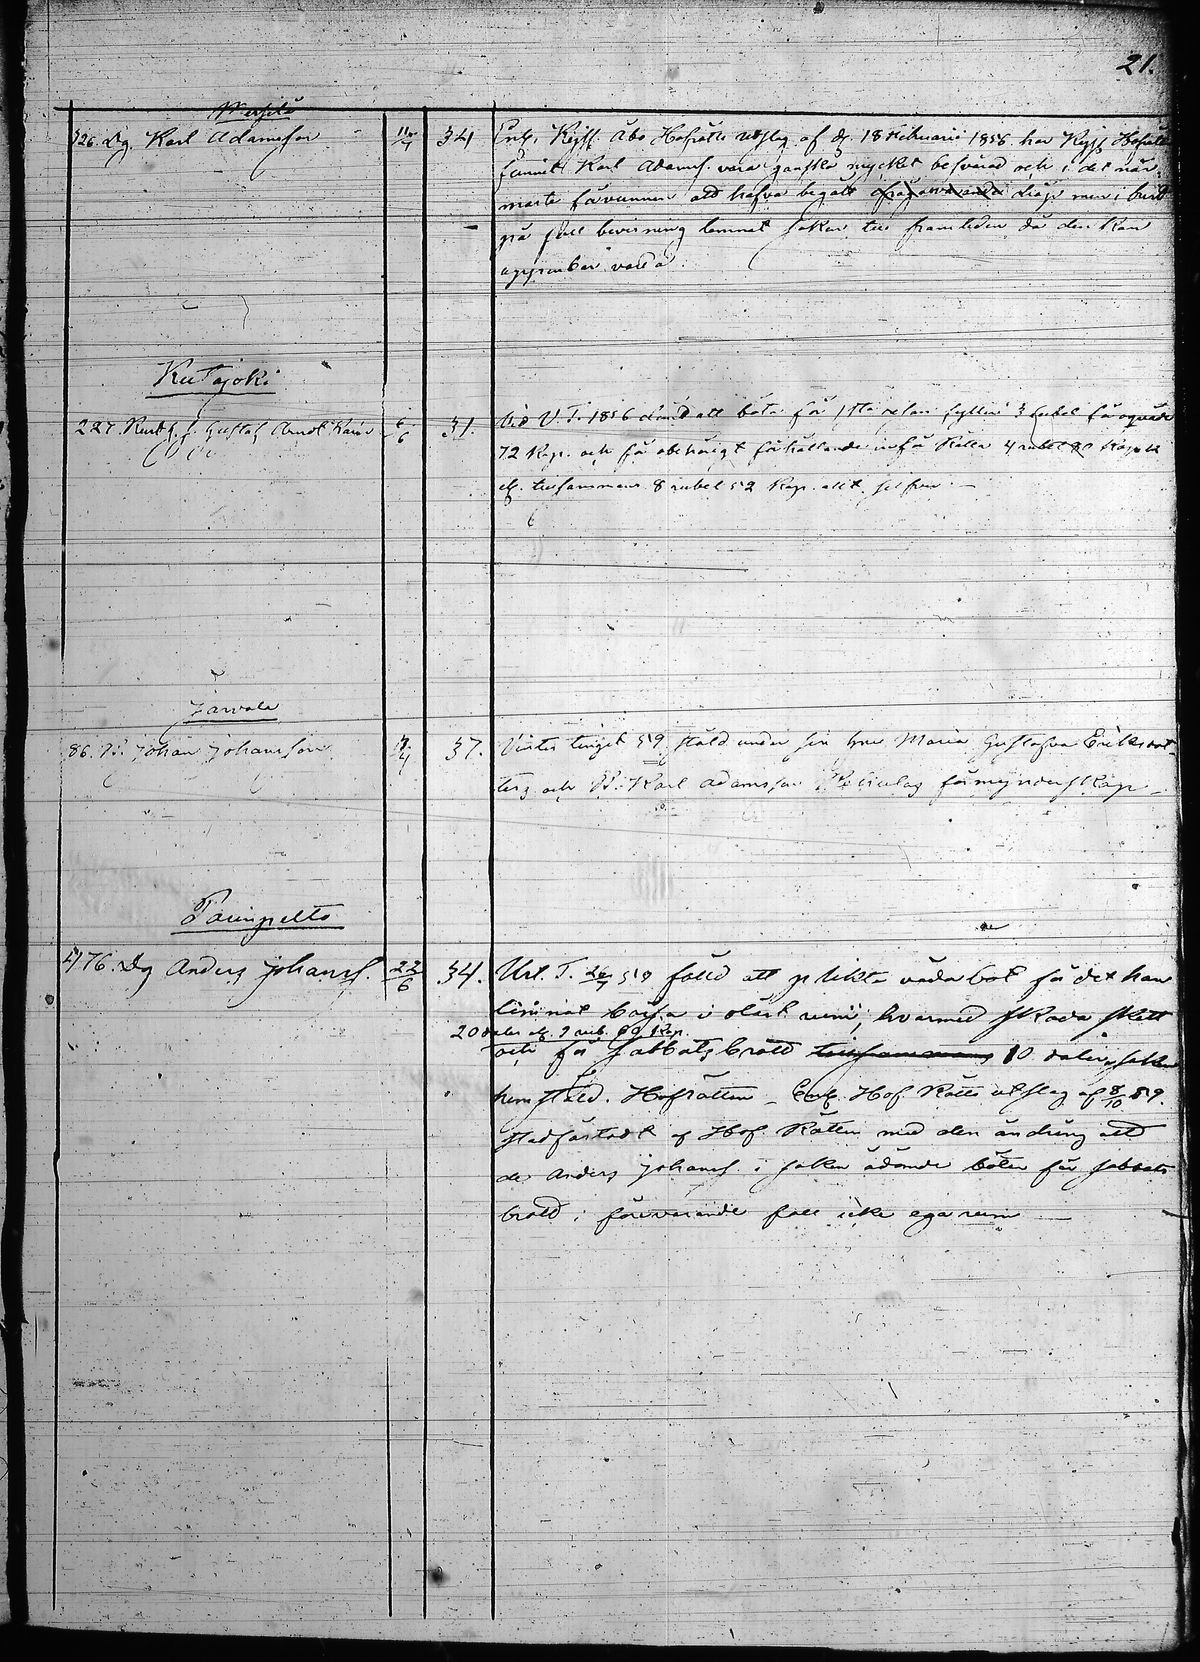 21.
Wesilä
326. Dg. Karl Adamsson 11/4 34 Enl. Kejs. Åbo Hofrätts utslag af d. 18 Februarii 1856 har Kejs Hofrätt
funnit Karl Adamss. vara ganska mycket besvärad och i det när
maste förvunnen att hafva begått tjuf men i brist
på full bevisning lemnat saken till framtiden då den kan
uppenbar varda
Kutajoki
227. Gustaf 6 31. Vid V. T. 1856 dömd att böta för 1sta resan fylleri 3 rubel för oqväde
72 Kop. och för obehörigt förhållande inför Rätta 4 rubel 80 Kop
el. tillsammans 8 rubel 52 Kop. allt silfver
Järvala
86. B. Johan Johansson 4 37. Vinter tinget 59 stäld under sin hru Maria Gustafva Eriksdot-
ters och B. Karl Adamsson förmynderskap
Pampelto
476. Dg Anders Johanss. 22/6 34. Url. T. 59 fälld att plikta vådabot för det han
lämnat bössa i olåst rum, hvarmed skada skett
20 daler el. 9 rub. 60 kop.
och för sabbatsbrott tillsammans 10 daler, saken
hemstäld Hofrätten Enl. Hof Rätts utslag af 8/10 59.
stadfästadt af Hof Rätten med den ändring att
de Anders Johanss. i saken ådömde böter för sabbats
brott i förevarande fall icke ega rum